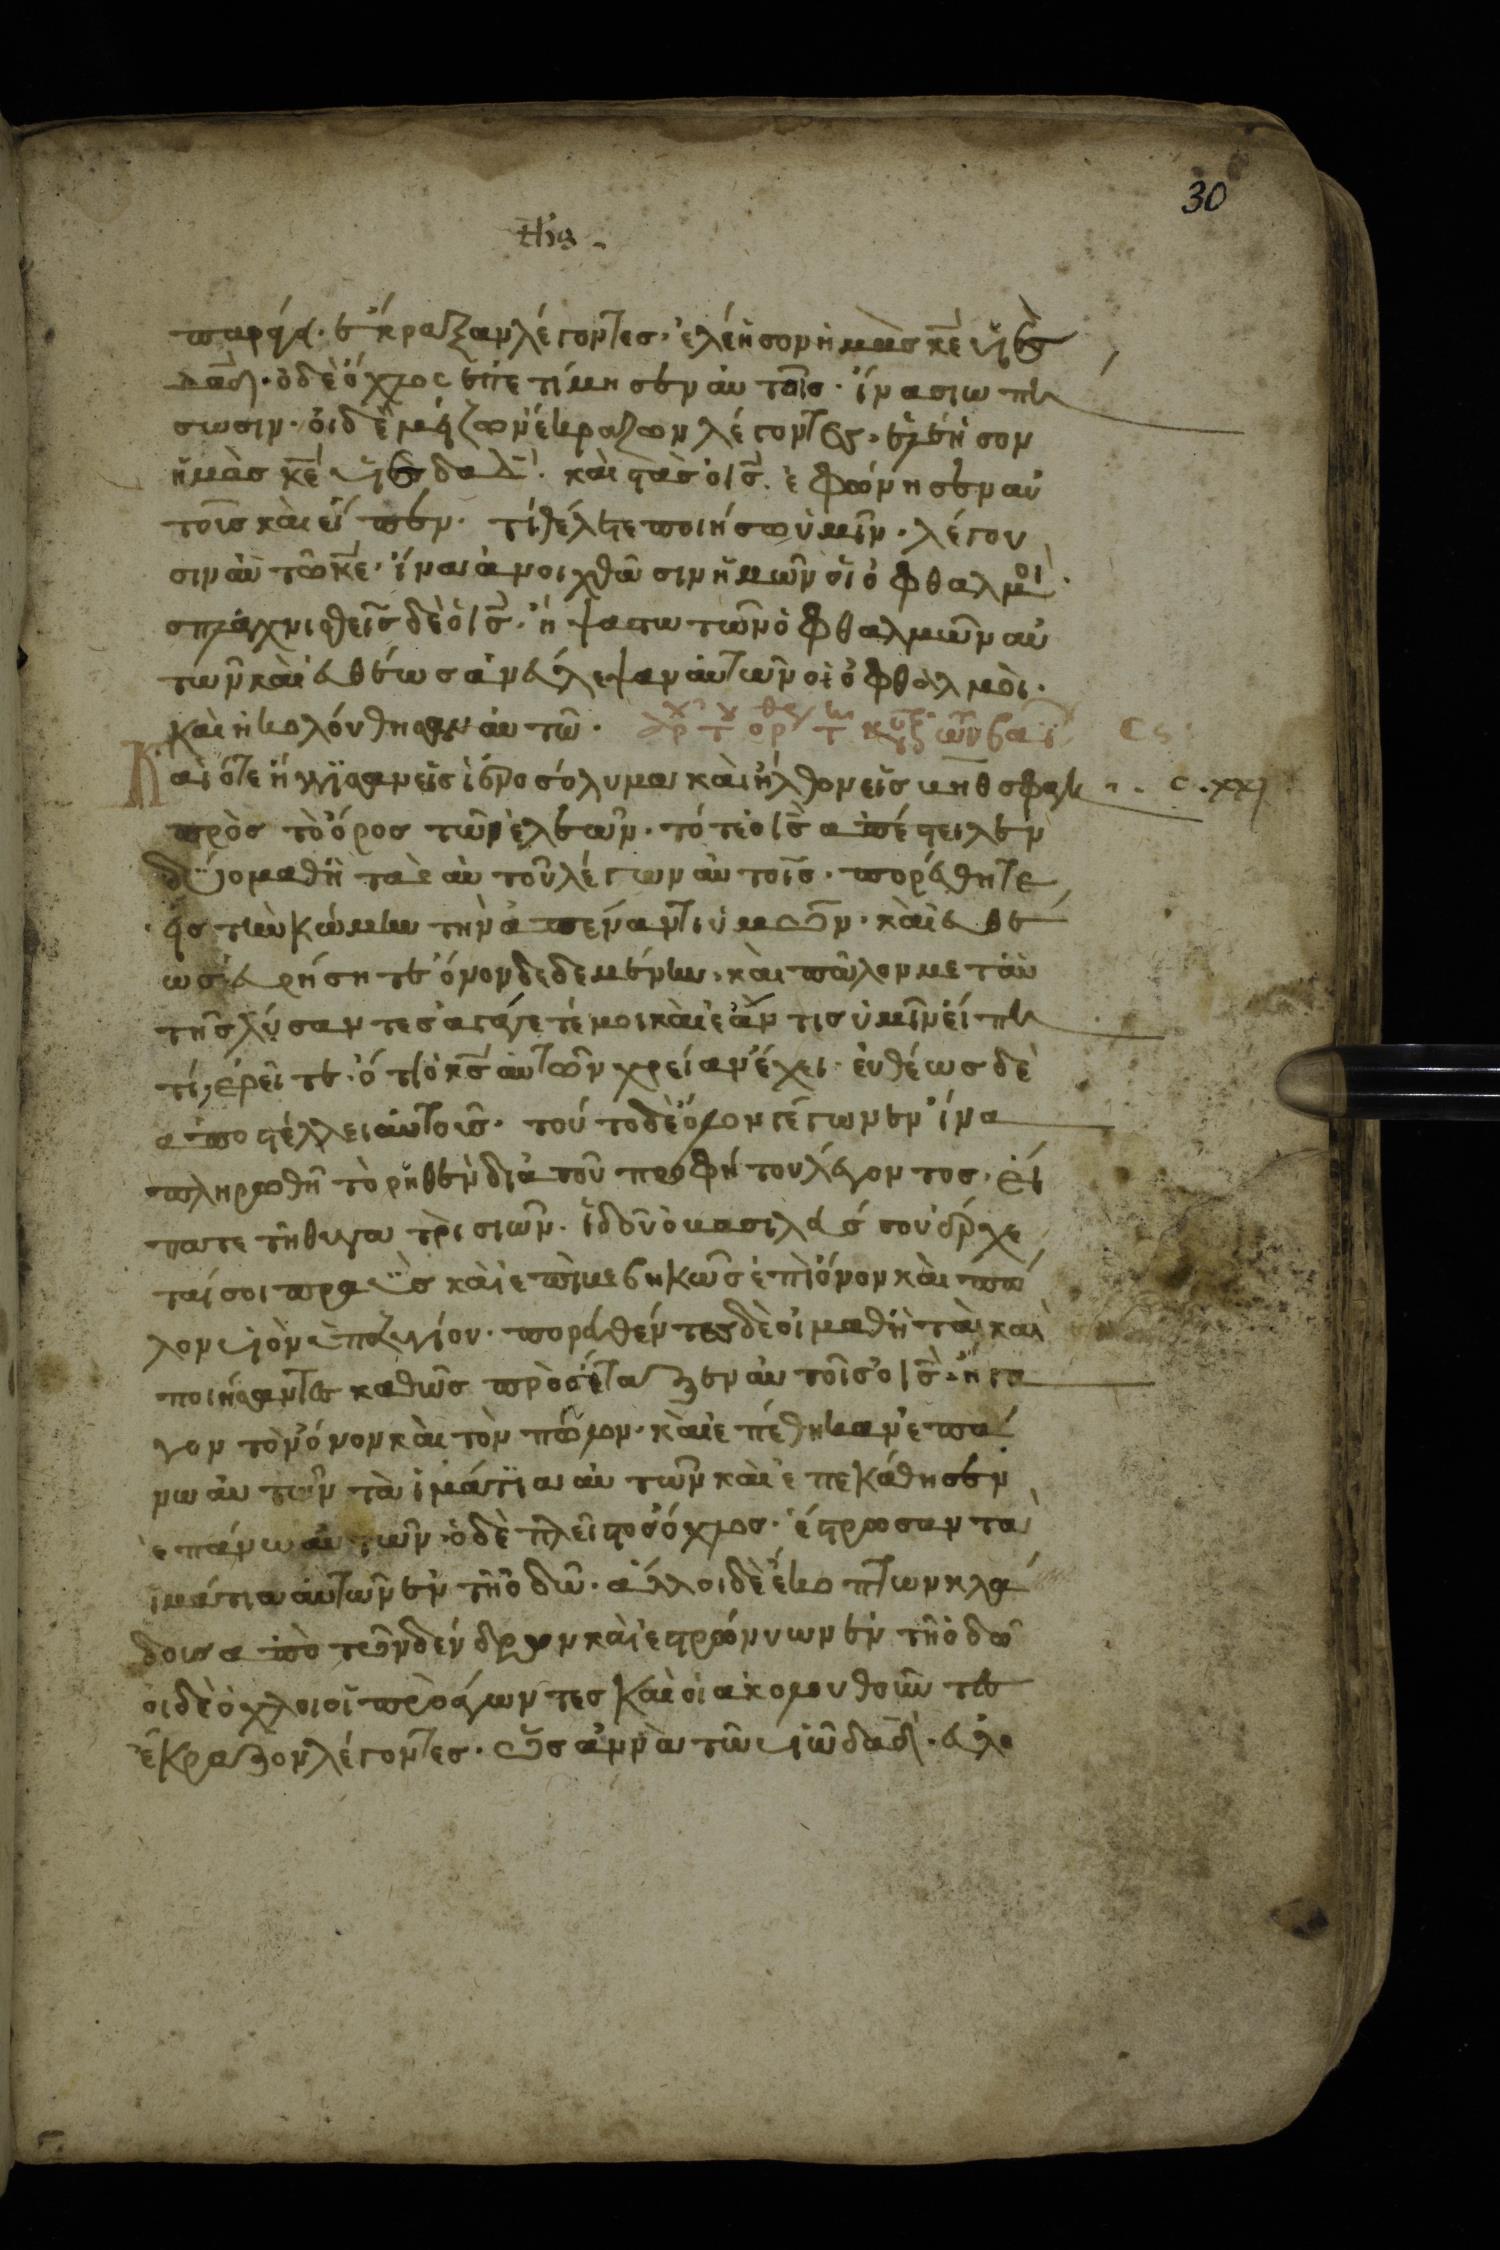 30
παράγει· ἔκραξαν λέγοντες· ἐλέησον ἡμᾶς κε υἱὸς
δαδ· ὁ δὲ ὄχλος ἐπετίμησεν αὐτοῖς· ἵνα σιωπη
σωσιν· οἱ δὲ μείζων ἔκραζων λέγοντες· ἐλέησον
ἡμᾶς κε υἱὸς δαδ· καὶ στὰς ὁ ις ἐφώνησεν αὐ
τοῖς καὶ εἶπεν· τί θέλεται ποιήσω ὑμῖν· λέγου
σιν αὐτῶ κε· ἵνα ἀνοιχθῶσιν ἡμῶν οἱ ὀφθαλμοὶ·
σπλαχνισθεὶς δὲ ὁ ις· ἥψατω τῶν ὀφθαλμῶν αὐ
τῶν καὶ εὐθέως ἀνέβλεψαν αὐτῶν οἱ ὀφθαλμοὶ·
καὶ ἠκολούθησαν αὐτῶ·
Καὶ ὅτε ἤγγισαν εἰς ἱεροσόλυμα καὶ ἦλθον εἰς βηθσφαγὴ c.xxj
πρὸς τὸ ὄρος τῶν ἐλεῶν· τότε ὁ ις ἀπέστειλεν
δύο μαθητὰς αὐτοῦ λέγων αὐτοῖς· πορεύθητε
εἰς τὴν κώμην τὴν ἀπέναντι ὑμῶν· καὶ εὐθέ
ως εὑρήσητε ὄνον δεδεμένην· καὶ πῶλον μετ αὐ
τῆς λύσαντες ἀγάγετέ μοι καὶ ἐάν τις ὑμῖν εἴπη
τί, ἐρεῖτε· ὅτι ὁ κς αὐτῶν χρείαν ἔχει· εὐθέως δὲ
ἀποστέλλει αὐτοῖς· τοῦτο δὲ ὅλον γέγωνεν ἵνα
πληρωθῆ τὸ ρηθὲν διὰ τοῦ προφήτου λέγοντος· εἴ
πατε τῆ θυγατρὶ σιών· ἰδοὺ ὁ βασιλεύς σου ἔρχε
ταί σοι πραῢς καὶ ἐπιβεβηκὼς ἐπὶ ὄνον καὶ πῶ
λον υἱὸν ὑποζυγίον· πορευθέντες δὲ οἱ μαθηταὶ καὶ
ποιήσαντες καθὼς πρὸσέταξεν αὐτοῖς ὁ ις· ἤγα
γον τὸν ὄνον καὶ τὸν πῶλον· καὶ ἐπέθηκαν ἐπά
νω αὐτῶν τὰ ἱμάτια αὐτῶν καὶ ἐπεκάθησεν
ἐπάνω αὐτῶν· ὁ δὲ πλεῖστος ὄχλος· ἔστρωσαν τὰ
ἱμάτια αὐτῶν ἐν τῆ ὁδῶ· ἄλλοι δὲ ἔκοπτων κλά
δους ἀπὸ τῶν δένδρων καὶ ἐστρώννυων ἐν τῆ ὁδῶ
οἱ δὲ ὄχλοι οἱ προάγωντες καὶ οἱ ἀκολουθοῦντες
ἔκραζον λέγοντες· ὡσαννὰ τῶ υἱῶ δαδ· εὐλο